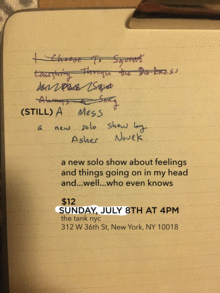 I Choose To Squint
Laughing Through the Darkness
Always a Sexy
(STILL) A Mess
a new solo show by
Asher Novek
a new solo show about feelings
and things going on in my head
and...well...who even knows
$12
SUNDAY, JULY 8TH AT 4PM
the tank nyc
312 W 36th St, New York, NY 10018